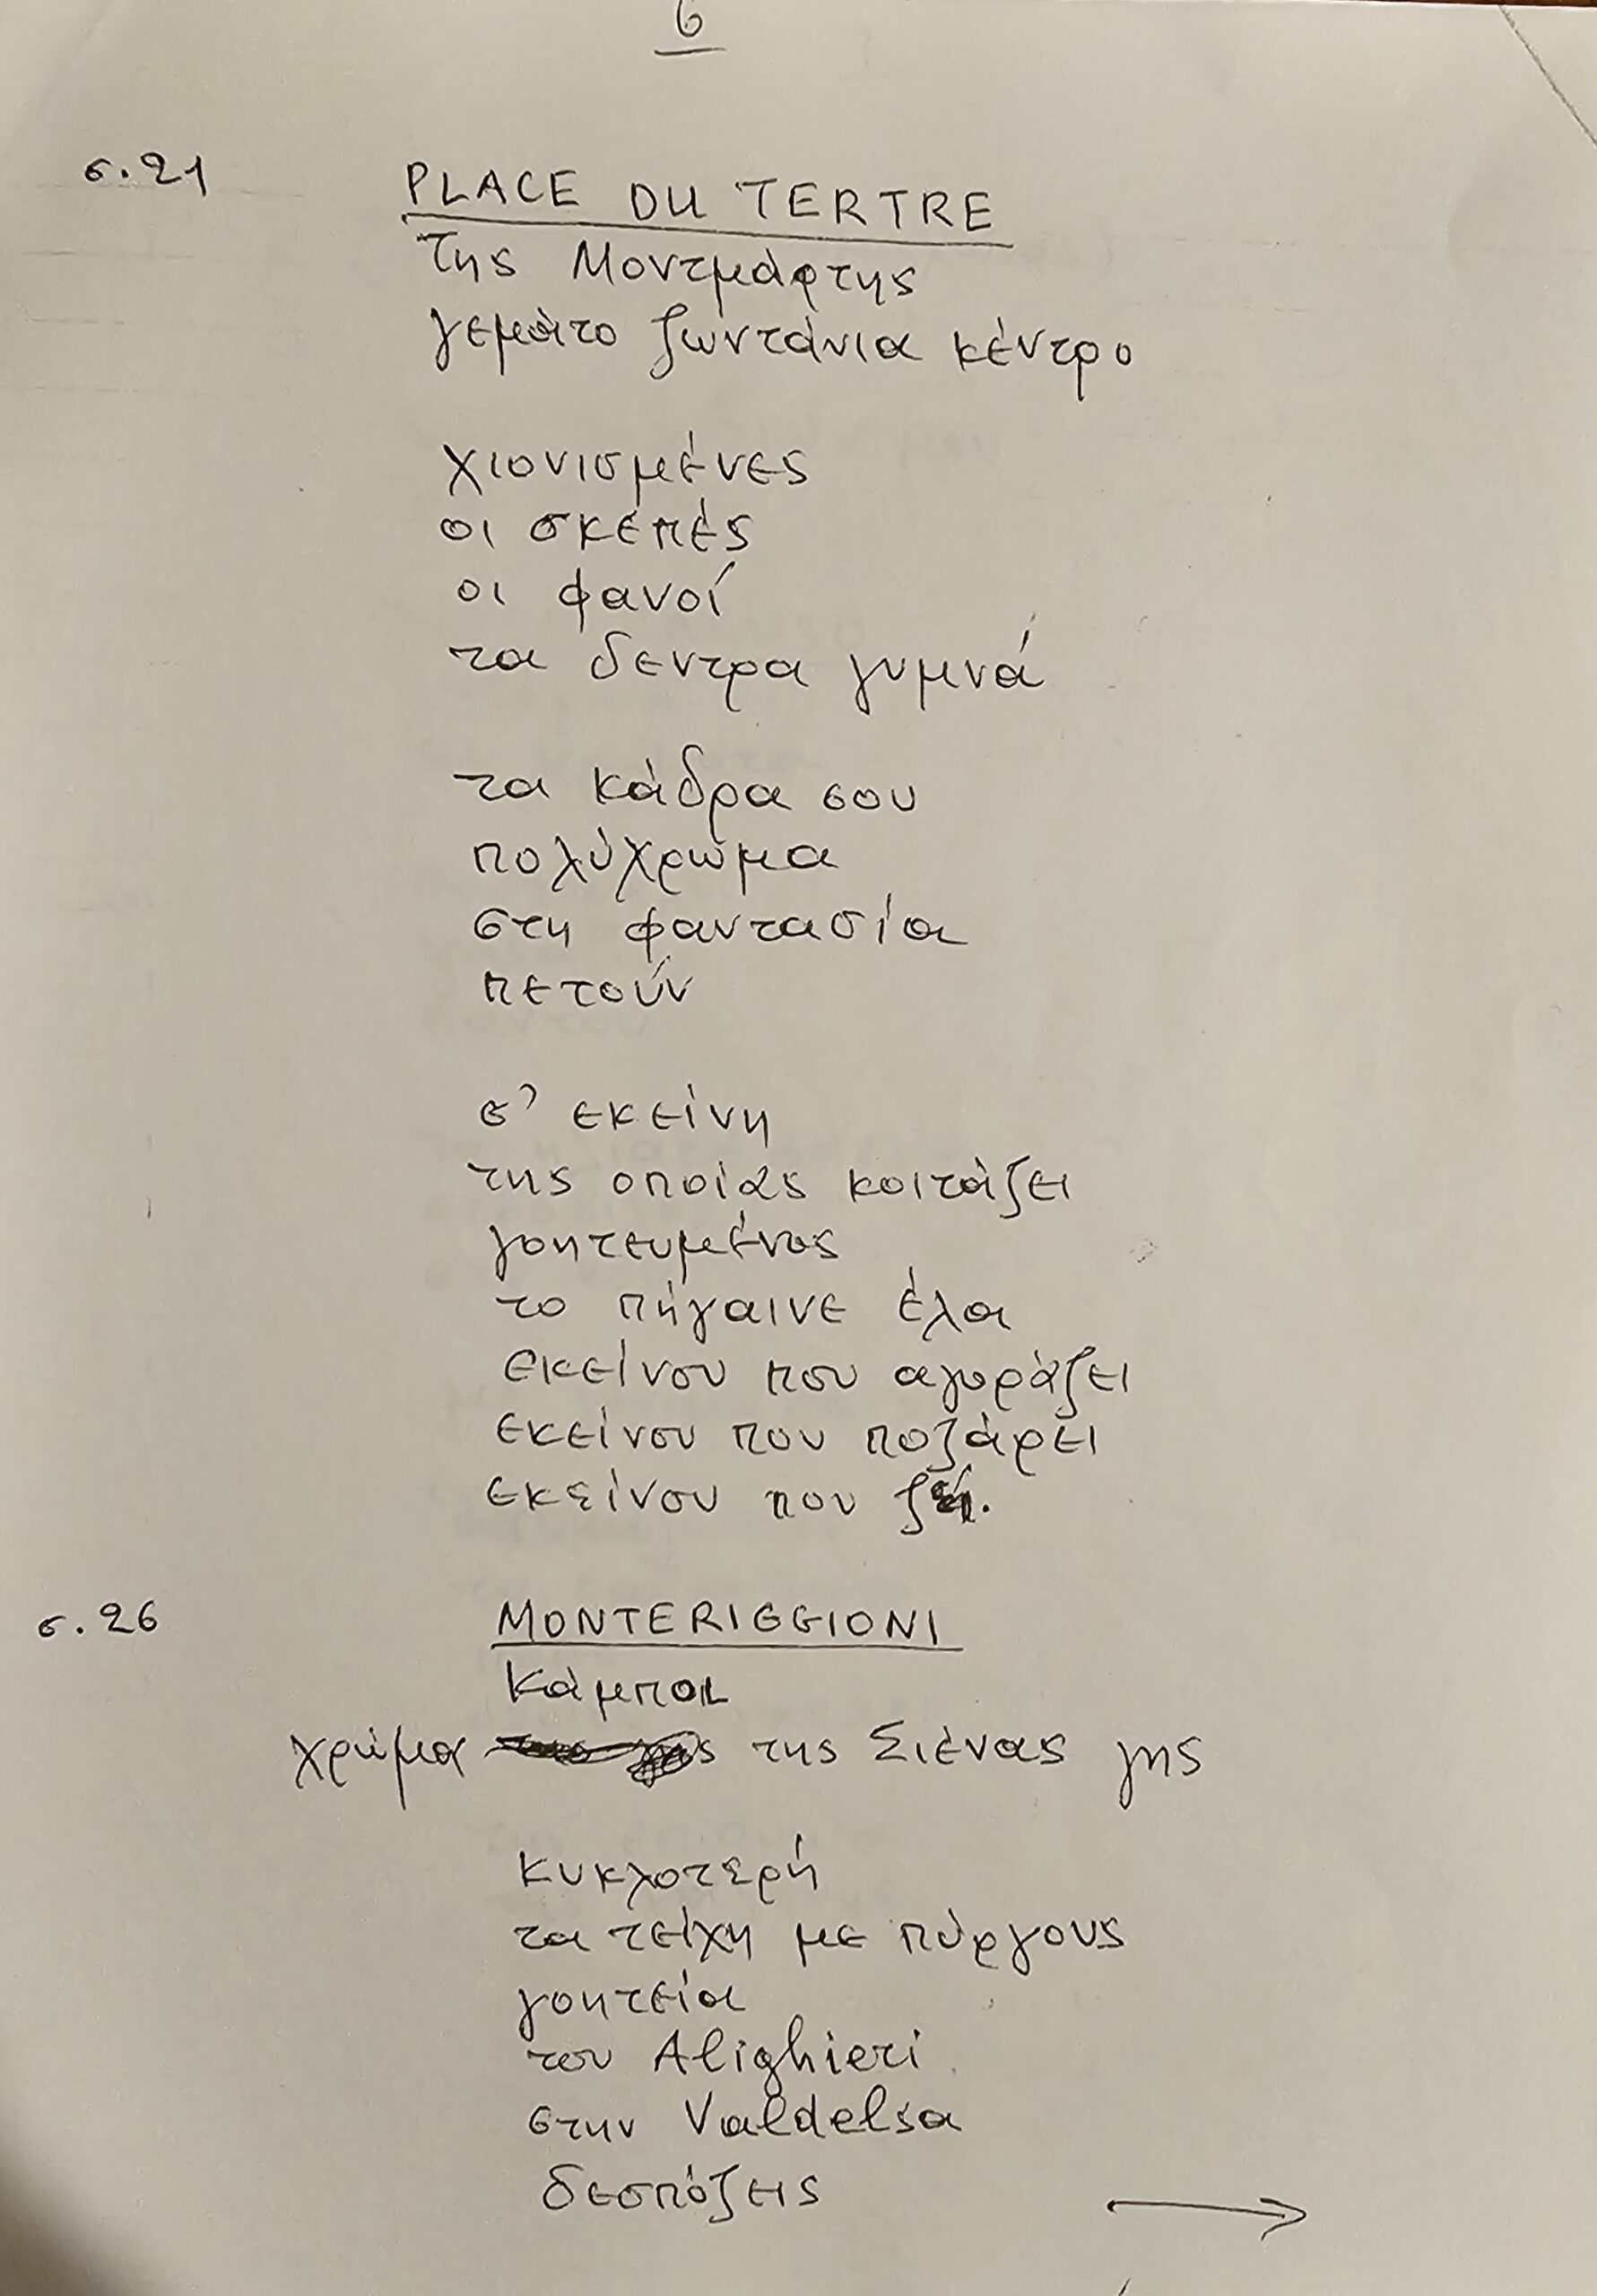 6
σ. 21
PLACE DU TERTRE
της Μοντμάρτης
γεμάτο ζωντάνια κέντρο
χιονισμένες
οι σκέπές
οι φανοί
τα δεντρα γυμνά
τα κάδρα σου
πολύχρωμα
στη φαντασία
πετούν
σ' εκείνη
της οποίας κοιτάζει
γοητευμένος
το πήγαινε έλα
εκείνου που αγοράζει
εκείνου που ποζάρει
εκείνου που
σ. 26
MONTERIGGIONI
Κάμποι
χρώμα της Σιένας γης
κυκλοτερή
τα τείχη με πύργους
γοητεία
του Alighieri
στην Valdelsa
δεσπόζεις
→